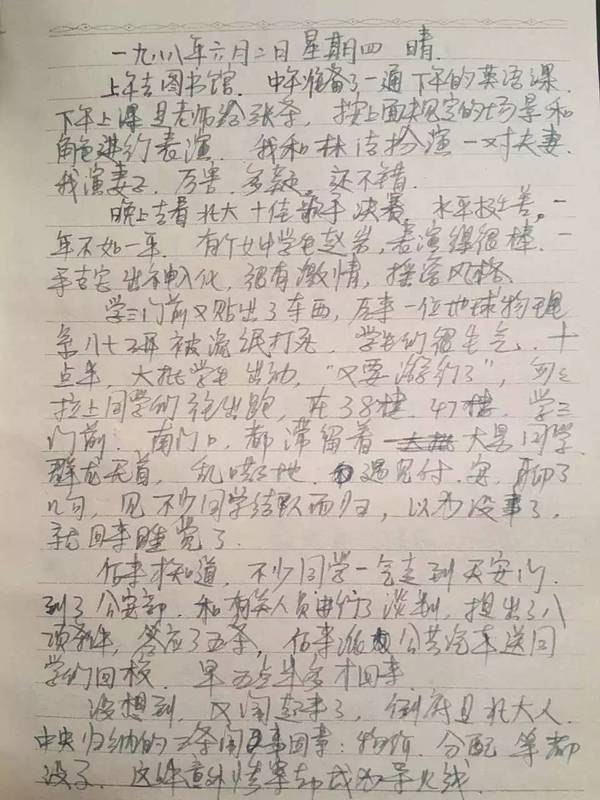 一九八八年六月二日 星期四 晴
上午去图书馆. 中午准备了一通下午的英语课.
下午上课是老师给张条, 按上面规定的场景和
角色进行表演. 我和林洁扮演一对夫妻.
我演妻子. 厉害. 多疑. 还不错.
晚上去看北大十佳歌手决赛. 水平较差. 一
年不如一年. 有个女中学生赵岩, 表演得很棒. 一
手吉它出神入化, 很有激情, 摇滚风格.
学三门前又贴出了东西, 原来一位地球物理
系八七研被流氓打死. 学生们很生气. 十
点半, 大批学生出动, "又要游行了",
拉上同学们往出跑, 在38楼. 47楼. 学三
门前. 南门口. 都滞留着 大量同学.
群龙无首, 乱哄哄地. 遇见付. 安. 聊了
几句, 见不少同学结队而归, 以为没事了,
就回来睡觉了.
后来才知道, 不少同学一气走到天安门.
到了公安部. 和有关人员进行了谈判, 提出了八
项条件, 答应了五条, 后来派公共汽车送同
学们回校. 早五点半多才回来.
没想到, 又闹起来了, 到底是北大人.
中央归纳的 条闹事因素: 物价. 分配 等都
没了. 这件意外情案却成为导火线.